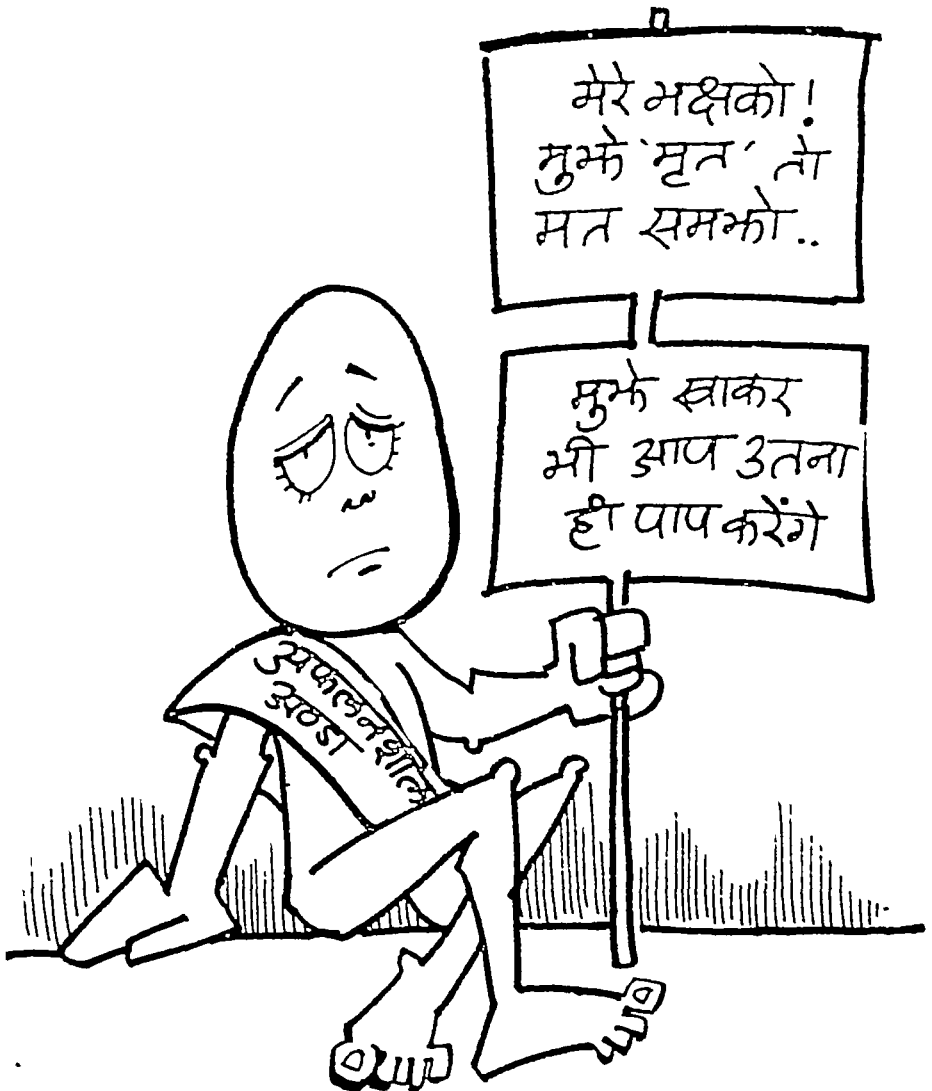 मेरे भक्षको!
मुझे 'मृत' तो
मत समझो..
मुझे खाकर
भी आप उतना
ही पाप करेंगे
अफलनशील
अण्डा